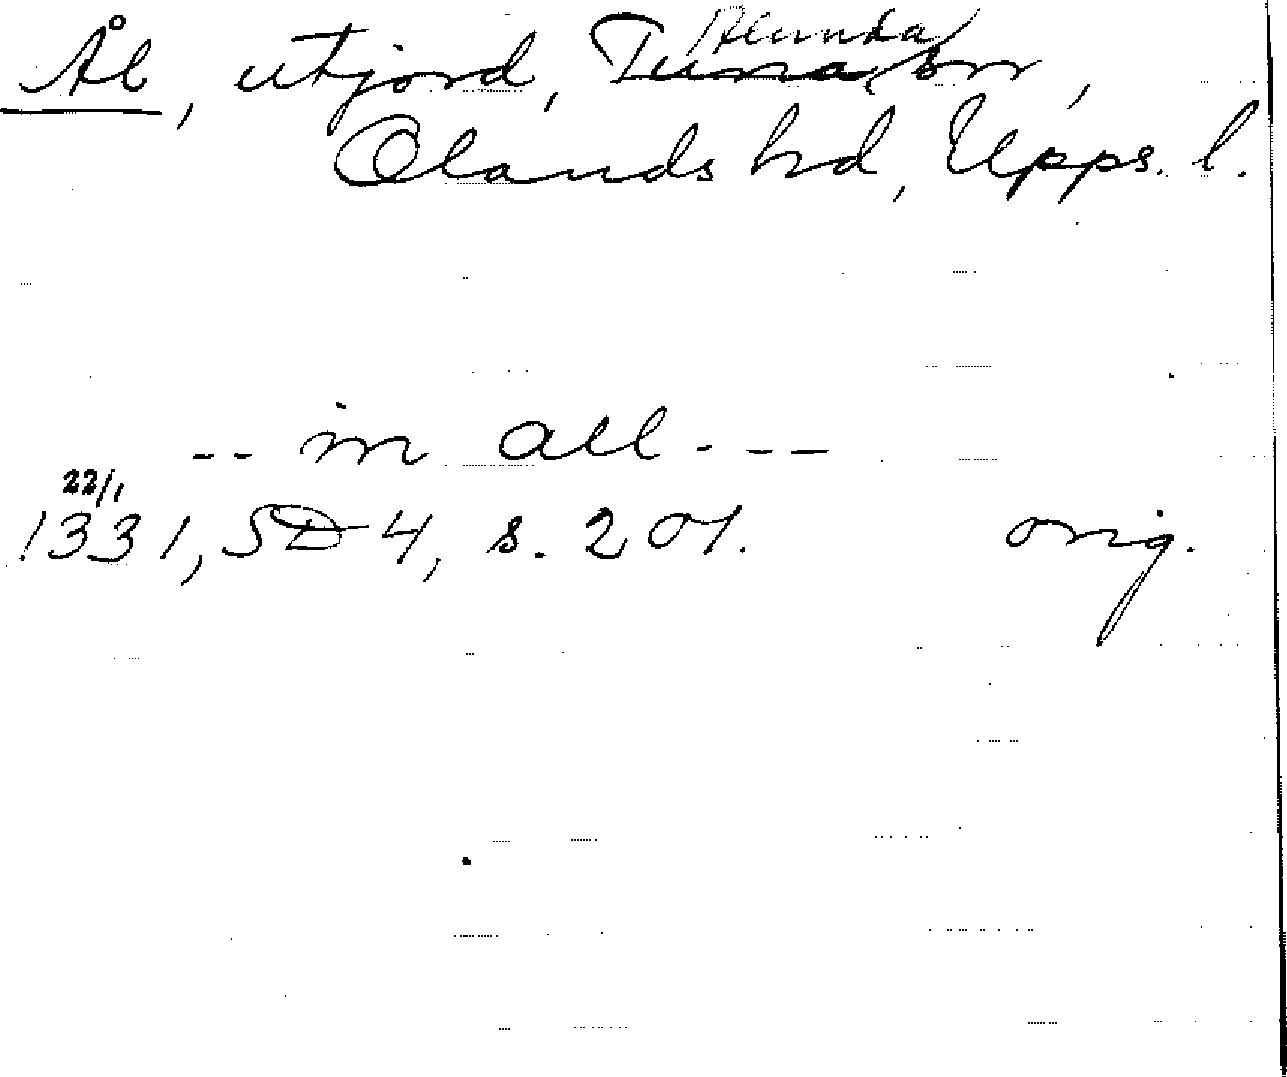 Ål, utjord, Tuna Alunda sn,
Olands hd, Upps. l.
-- in all - --
22/1
1331, SD 4, s. 201. orig.